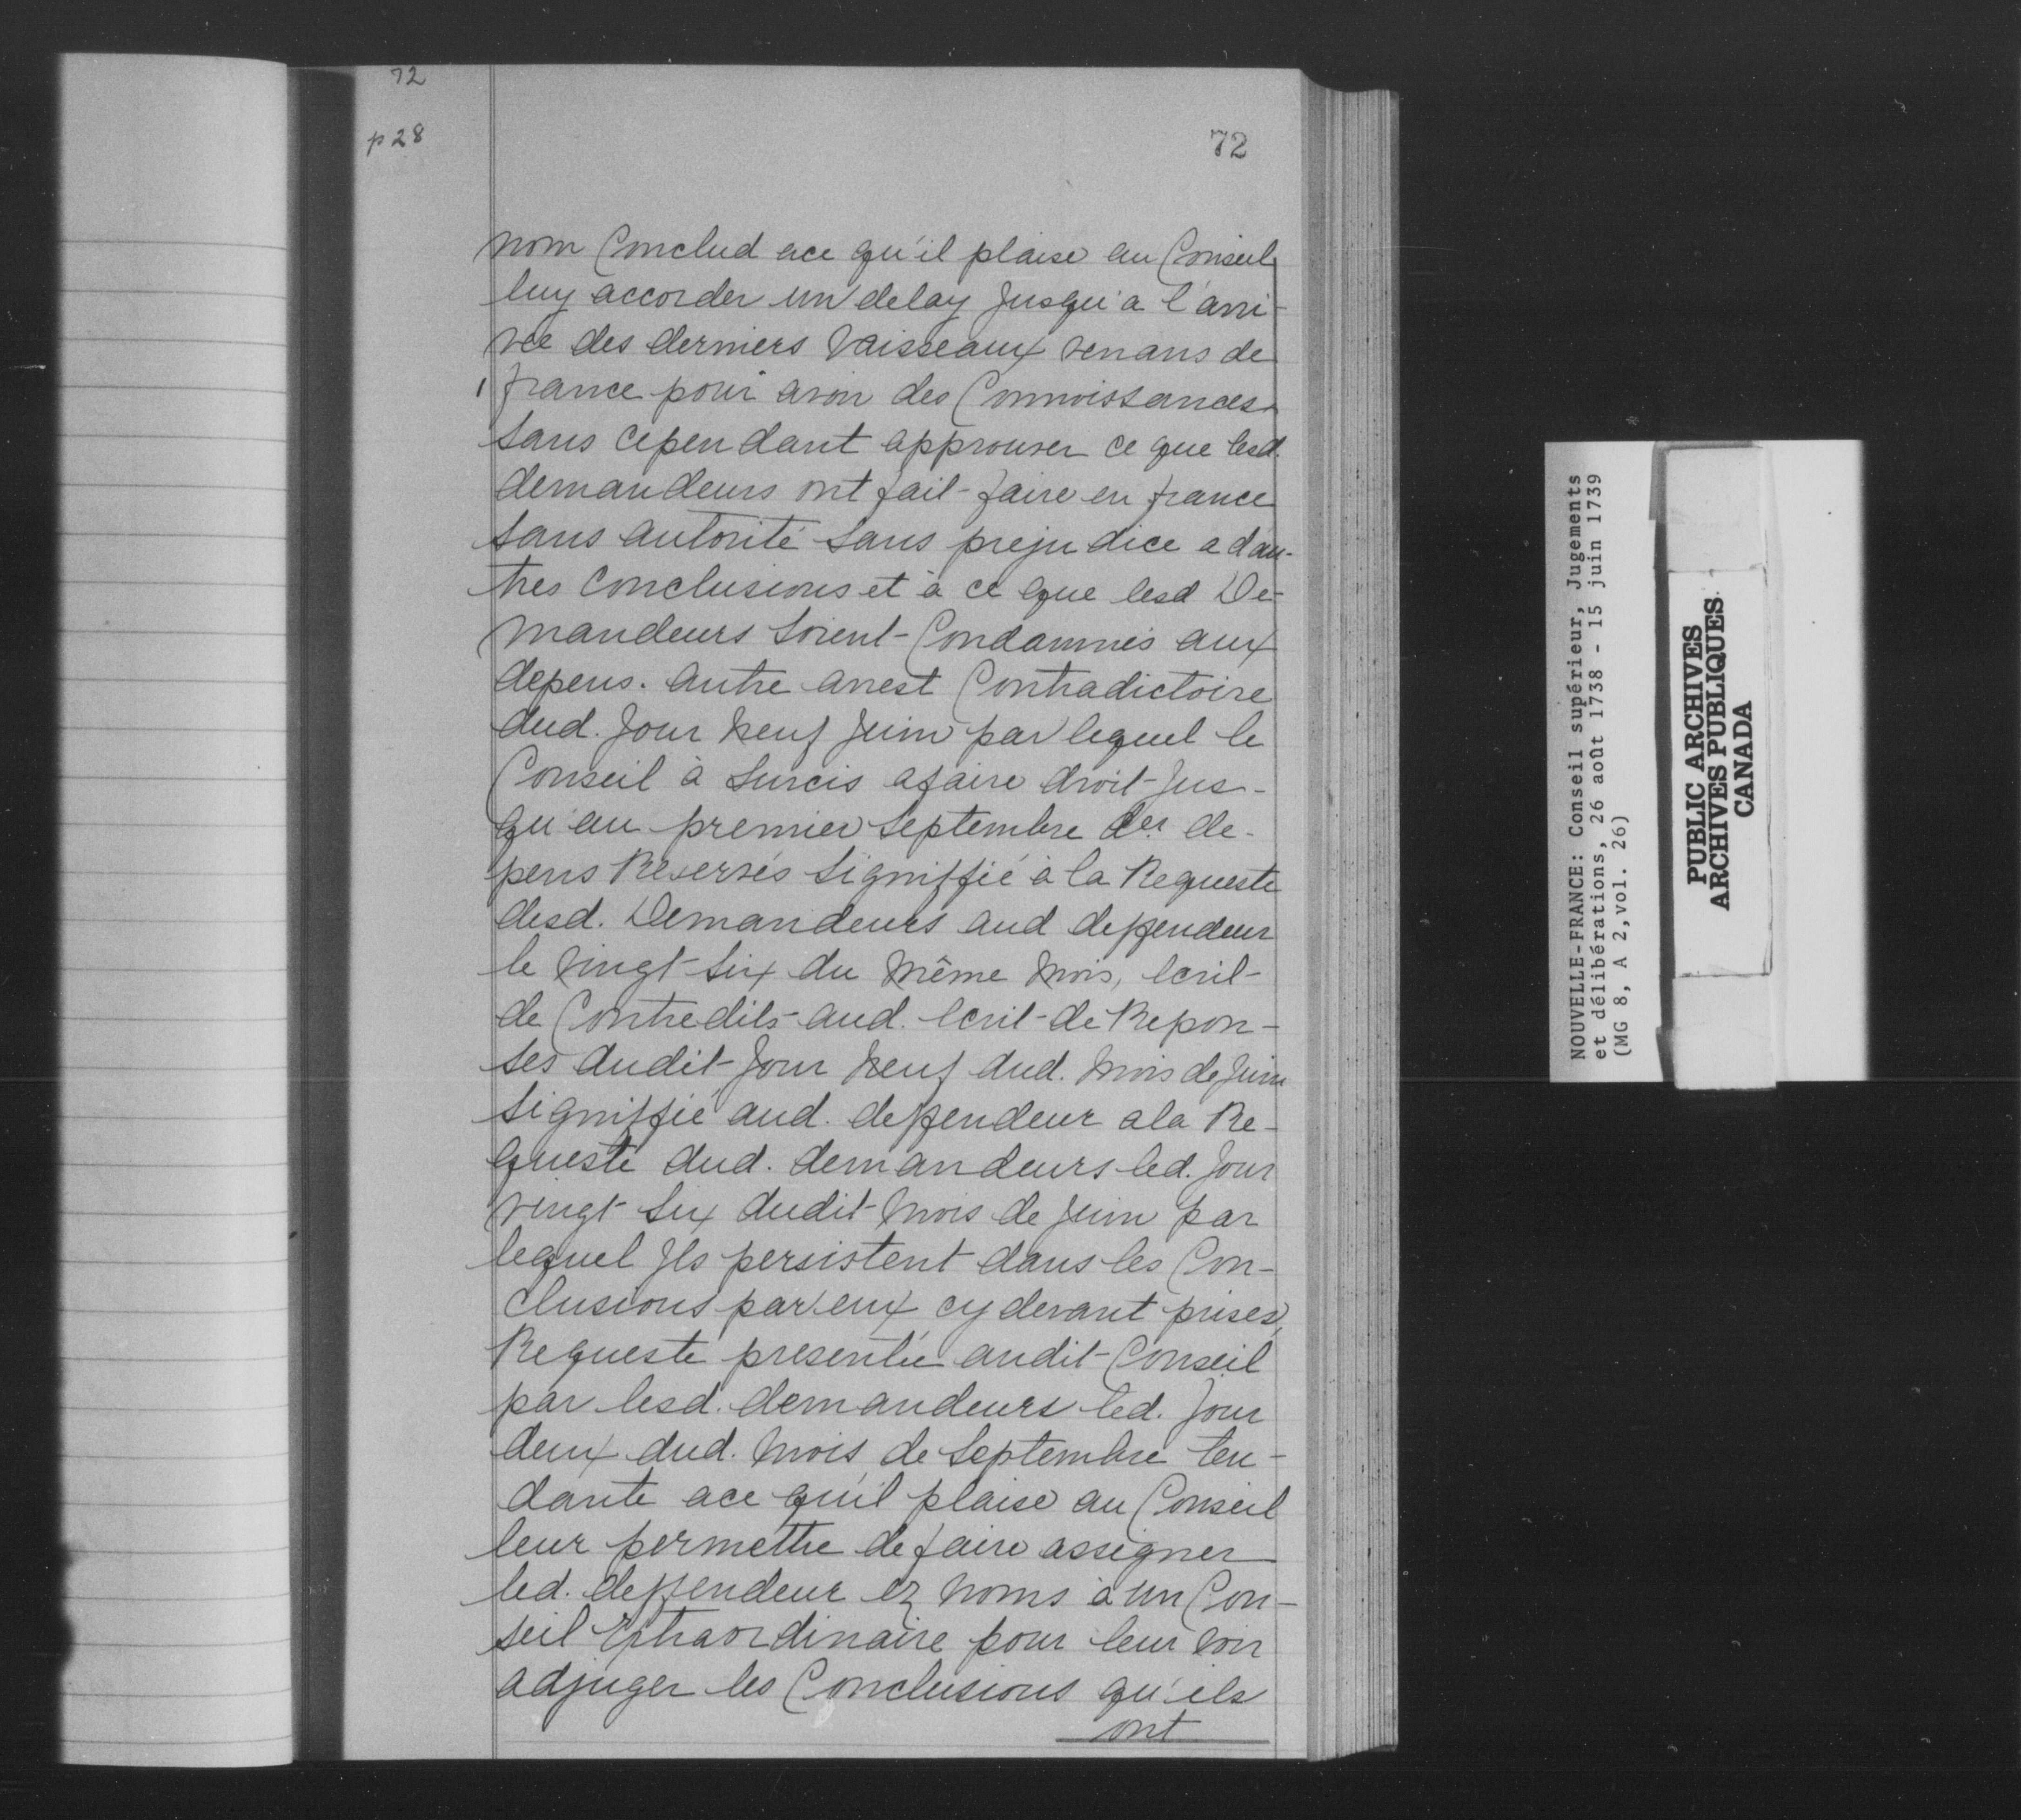 72
p 28
72
nom Conclud ace qu'il plaise au Conseil
luy accorder un delay Jusqu'a l'arri-
vée des derniers Vaisseaux venans de
france pour avoir des Connoissances
sans cependant approuver ce que lesd.
demandeurs ont fait faire en france
sans autorité sans prejudice a d'au-
tres Conclusions et à ce que lesd De-
mandeurs soient Condamnés aux
depens. autre arrest Contradictoire
dud. Jour Neuf Juin par lequel le
Conseil à surcis afaire droit Jus-
qu'au premier Septembre der de-
pens Reservés signiffié à la Requeste
desd. Demandeurs aud deffendeur
le vingt six du même mois, Ecrit
de Contredits aud. Ecrit de Repon-
ses dudit Jour Neuf dud. mois de Juin
signiffié aud. deffendeur ala Re-
queste dud. demandeurs led. Jour
vingt six dudit mois de Juin par
lequel Ils persistent dans les Con-
clusions par eux cy devant prises,
Requeste presentée audit Conseil
par lesd. demandeurs led. Jour
deux dud. mois de Septembre ten-
dante ace qu'il plaise au Conseil
leur permettre de faire assigner
led. deffendeur ez noms à un Con-
seil Extraordinaire pour leur voir
adjuger les Conclusions qu'ils
ont
NOUVELLE-FRANCE: Conseil supérieur, Jugements
et délibérations, 26 août 1738 - 15 juin 1739
(MG 8, A 2, vol. 26)
PUBLIC ARCHIVES
ARCHIVES PUBLIQUES
CANADA